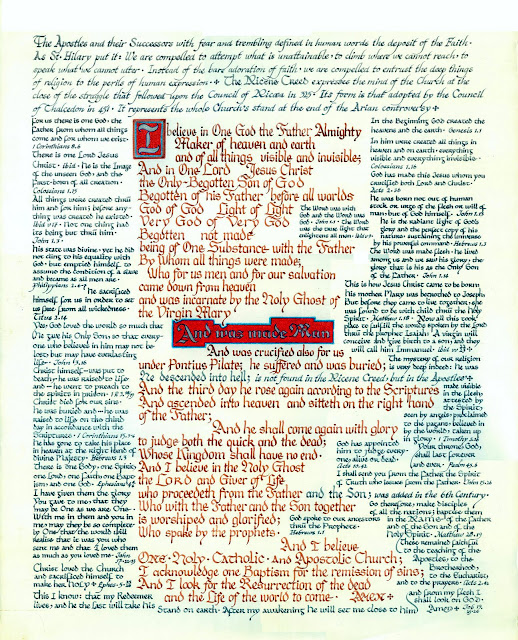 The Apostles and their Successors with fear and trembling defined in human words the deposit of the Faith.
As St. Hilary put it. We are compelled to attempt what is unattainable. to climb where we cannot reach. to
speak what we cannot utter. Instead of the bare adoration of faith. we are compelled to entrust the deep things
of religion to the perils of human expression. + The Nicene Creed expresses the mind of the Church at the
close of the struggle that followed upon the Council of Nicæa in 325. Its form is that adopted by the Council
of Chalcedon in 451. It represents the whole Church's stand at the end of the Arian controversy +
For us there is one God. the
Father from whom all things
come and for whom we exist.
1 Corinthians 8.6
There is one Lord Jesus
Christ. ibid. He is the Image
of the unseen God and the
first-born of all creation.
Colossians 1.15
All things were created through
him and for him; before any-
thing was created he existed.
ibid v17. Not one thing has
its being but thru him.
John 1.3.
His state was divine. yet he did
not cling to his equality with
God. but emptied himself. to
assume the condition of a slave
and became as all men are.
Philippians 2.6-7
He sacrificed
himself for us in order to set
us free from all wickedness.
Titus 2.14
Yes. God loved the world so much that
He gave his Only Son so that every-
one who believed in him may not be
lost. but may have everlasting
life. John 3.16
Christ himself — was put to
death. he was raised to life.
and — he went to preach to
the spirits in prison. 1 P.
Christ died for our sins —
He was buried and — he was
raised to life on the third
day in accordance with the
Scriptures. 1 Corinthians 15.3-4
He has gone to take his place
in heaven at the right hand of
Divine Majesty. Hebrews 1.3
There is one Body. one Spirit.
one Lord. one Faith. one Bap-
tism. and one God. Ephesians 4.4
I have given them the glory
You gave to me. that they
may be One as we are One.
With me in them and you in
me. may they be so complete-
ly One that the world will
realise that it was you who
sent me and that I loved them
as much as you loved me. John
17-22.23
Christ loved the Church
and sacrificed himself to
make her holy + Ephes. 5.25
This I know: that my Redeemer
lives; and he the last will take his
I believe in One God the Father Almighty
Maker of heaven and earth
and of all things visible and invisible;
And in One Lord Jesus Christ
the Only-Begotten Son of God
Begotten of his Father before all worlds
God of God Light of Light
Very God of Very God
Begotten not made
The Word was with
God and the Word was
God. John 1.1. The Word
was the true light that
enlightens all men. ibid v9
being of One Substance with the Father
By Whom all things were made;
Who for us men and for our salvation
came down from heaven
and was incarnate by the Holy Ghost of
the Virgin Mary
And was made Man
And was crucified also for us
under Pontius Pilate; he suffered and was buried;
He descended into hell; is not found in the Nicene Creed. but in the Apostles' +
And the third day he rose again according to the Scriptures
And ascended into heaven and sitteth on the right hand
of the Father;
And he shall come again with glory
to judge both the quick and the dead;
Whose Kingdom shall have no end.
And I believe in the Holy Ghost
the Lord and Giver of Life
who proceedeth from the Father and the Son; was added in the 6th Century.
Who with the Father and the Son together
is worshiped and glorified;
Who spake by the prophets.
God spoke to our ancestors
thru the Prophets.
Hebrews 1.1
And I believe
One. Holy. Catholic. And Apostolic Church;
I acknowledge one Baptism for the remission of sins;
And I look for the Resurrection of the dead
and the Life of the world to come. Amen +
In the Beginning God created the
heavens and the earth. Genesis 1.1
In him were created all things
in heaven and on earth. everything
visible and everything invisible.
Colossians 1.16
God has made this Jesus whom you
crucified both Lord and Christ.
Acts 2.36
He was born not out of human
stock. or urge of the flesh or will of
man. but of God himself. John 1.13
He is the radiant light of God's
glory and the perfect copy of his
nature. sustaining the universe
by his powerful command. Hebrews 1.3
The Word was made flesh. he lived
among us and we saw his glory. the
glory that is his as the Only Son
of the Father. John 1.14
This is how Jesus Christ came to be born
his mother Mary was betrothed to Joseph
But before they came to live together. she
was found to be with child thru the Holy
Spirit. Matthew 1.18. Now all this took
place to fulfil the words spoken by the Lord
thru the prophet Isaiah. A virgin will
conceive and give birth to a son; and they
will call him Emmanuel. ibid vv 22+23
The mystery of our religion
is very deep indeed. He was
made visible
in the flesh.
attested by
the Spirit.
seen by angels. proclaimed
to the pagans. believed in
by the world. taken up
in glory. 1 Timothy 3.16
Your throne. God.
shall last forever
and ever. Psalm 45.6
God has appointed
him to judge every-
one. alive or dead.
Acts 10.42
I shall send you from the Father the Spirit
of Truth who issues from the Father. John 15.26
Go therefore; make disciples
of all the nations; baptise them
in the Name of the Father
and of the Son and of the
Holy Spirit. Matthew 28.19
These remained faithful
to the teaching of the
Apostles. to the
Brotherhood.
to the Eucharist
and to the prayers. Acts 2.42
and from my flesh I
shall look on God.
Stand on earth. After my awakening he will set me close to him Amen +